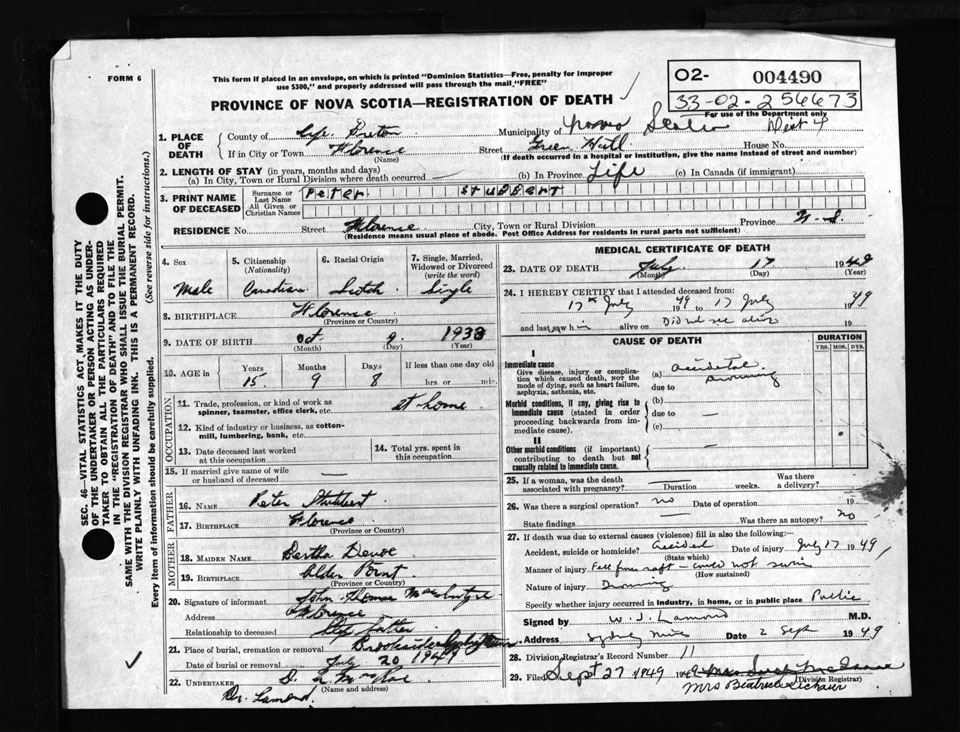 FORM 6
This form if placed in an envelope, on which is printed "Dominion Statistics—Free, penalty for improper
use $300," and properly addressed will pass through the mail, "FREE"
PROVINCE OF NOVA SCOTIA—REGISTRATION OF DEATH
02- 004490
33-02-256673
For use of the Department only
1. PLACE OF DEATH
County of Cape Breton Municipality of Nova Scotia Dist 4
If in City or Town Florence Street Green Hill House No.
(Name) (If death occurred in a hospital or institution, give the name instead of street and number)
2. LENGTH OF STAY (in years, months and days)
(a) In City, Town or Rural Division where death occurred — (b) In Province Life (c) In Canada (if immigrant)
3. PRINT NAME OF DECEASED
Surname or Last Name Peter Stubbert
All Given or Christian Names
RESIDENCE No. Street Florence City, Town or Rural Division Province N.S.
(Residence means usual place of abode. Post Office Address for residents in rural parts not sufficient)
4. Sex
Male
5. Citizenship (Nationality)
Canadian
6. Racial Origin
Scotch
7. Single, Married, Widowed or Divorced (write the word)
Single
8. BIRTHPLACE Florence
(Province or Country)
9. DATE OF BIRTH Oct 9 1933
(Month) (Day) (Year)
10. AGE in Years Months Days If less than one day old
15 9 8 hrs. or min.
OCCUPATION
11. Trade, profession, or kind of work as spinner, teamster, office clerk, etc. at home
12. Kind of industry or business, as cotton-mill, lumbering, bank, etc.
13. Date deceased last worked at this occupation
14. Total yrs. spent in this occupation
15. If married give name of wife or husband of deceased —
FATHER
16. NAME Peter Stubbert
17. BIRTHPLACE Florence
(Province or Country)
MOTHER
18. MAIDEN NAME Bertha Devoe
19. BIRTHPLACE Alder Point
(Province or Country)
20. Signature of informant John Thomas MacIntyre
Address Florence
Relationship to deceased Step Father
21. Place of burial, cremation or removal Brookside
Date of burial or removal July 20 1949
22. UNDERTAKER
(Name and address)
Dr. Lamond.
MEDICAL CERTIFICATE OF DEATH
23. DATE OF DEATH July 17 1949
(Month) (Day) (Year)
24. I HEREBY CERTIFY that I attended deceased from:
17th July 1949 to 17 July 1949
and last saw him alive on Did not see alive 19
CAUSE OF DEATH
DURATION
YRS. MOS. DYS.
I
Immediate cause
Give disease, injury or complication which caused death, NOT the mode of dying, such as heart failure, asphyxia, asthenia, etc.
(a) accidental Drowning
due to
Morbid conditions, if any, giving rise to immediate cause (stated in order proceeding backwards from immediate cause).
(b)
due to —
(c)
II
Other morbid conditions (if important) contributing to death but not causally related to immediate cause.
—
25. If a woman, was the death associated with pregnancy? — Duration weeks. Was there a delivery? —
26. Was there a surgical operation? no Date of operation —
State findings — Was there an autopsy? no
27. If death was due to external causes (violence) fill in also the following:
Accident, suicide or homicide? accident Date of injury July 17 1949,
(State which)
Manner of injury Fell from raft - could not swim
(How sustained)
Nature of injury Drowning
Specify whether injury occurred in industry, in home, or in public place Public
Signed by W. J. Lamond M.D.
Address Sydney Mines Date 2 Sept 1949
28. Division Registrar's Record Number 11
29. Filed Sept 27 1949
(Division Registrar)
Mrs Beatrice
SEC. 46—VITAL STATISTICS ACT, MAKES IT THE DUTY
OF THE UNDERTAKER OR PERSON ACTING AS UNDER-
TAKER TO OBTAIN ALL THE PARTICULARS REQUIRED
IN THE "REGISTRATION OF DEATH" AND TO FILE THE
SAME WITH THE DIVISION REGISTRAR WHO SHALL ISSUE THE BURIAL PERMIT.
WRITE PLAINLY WITH UNFADING INK. THIS IS A PERMANENT RECORD.
Every item of information should be carefully supplied. (See reverse side for instructions.)